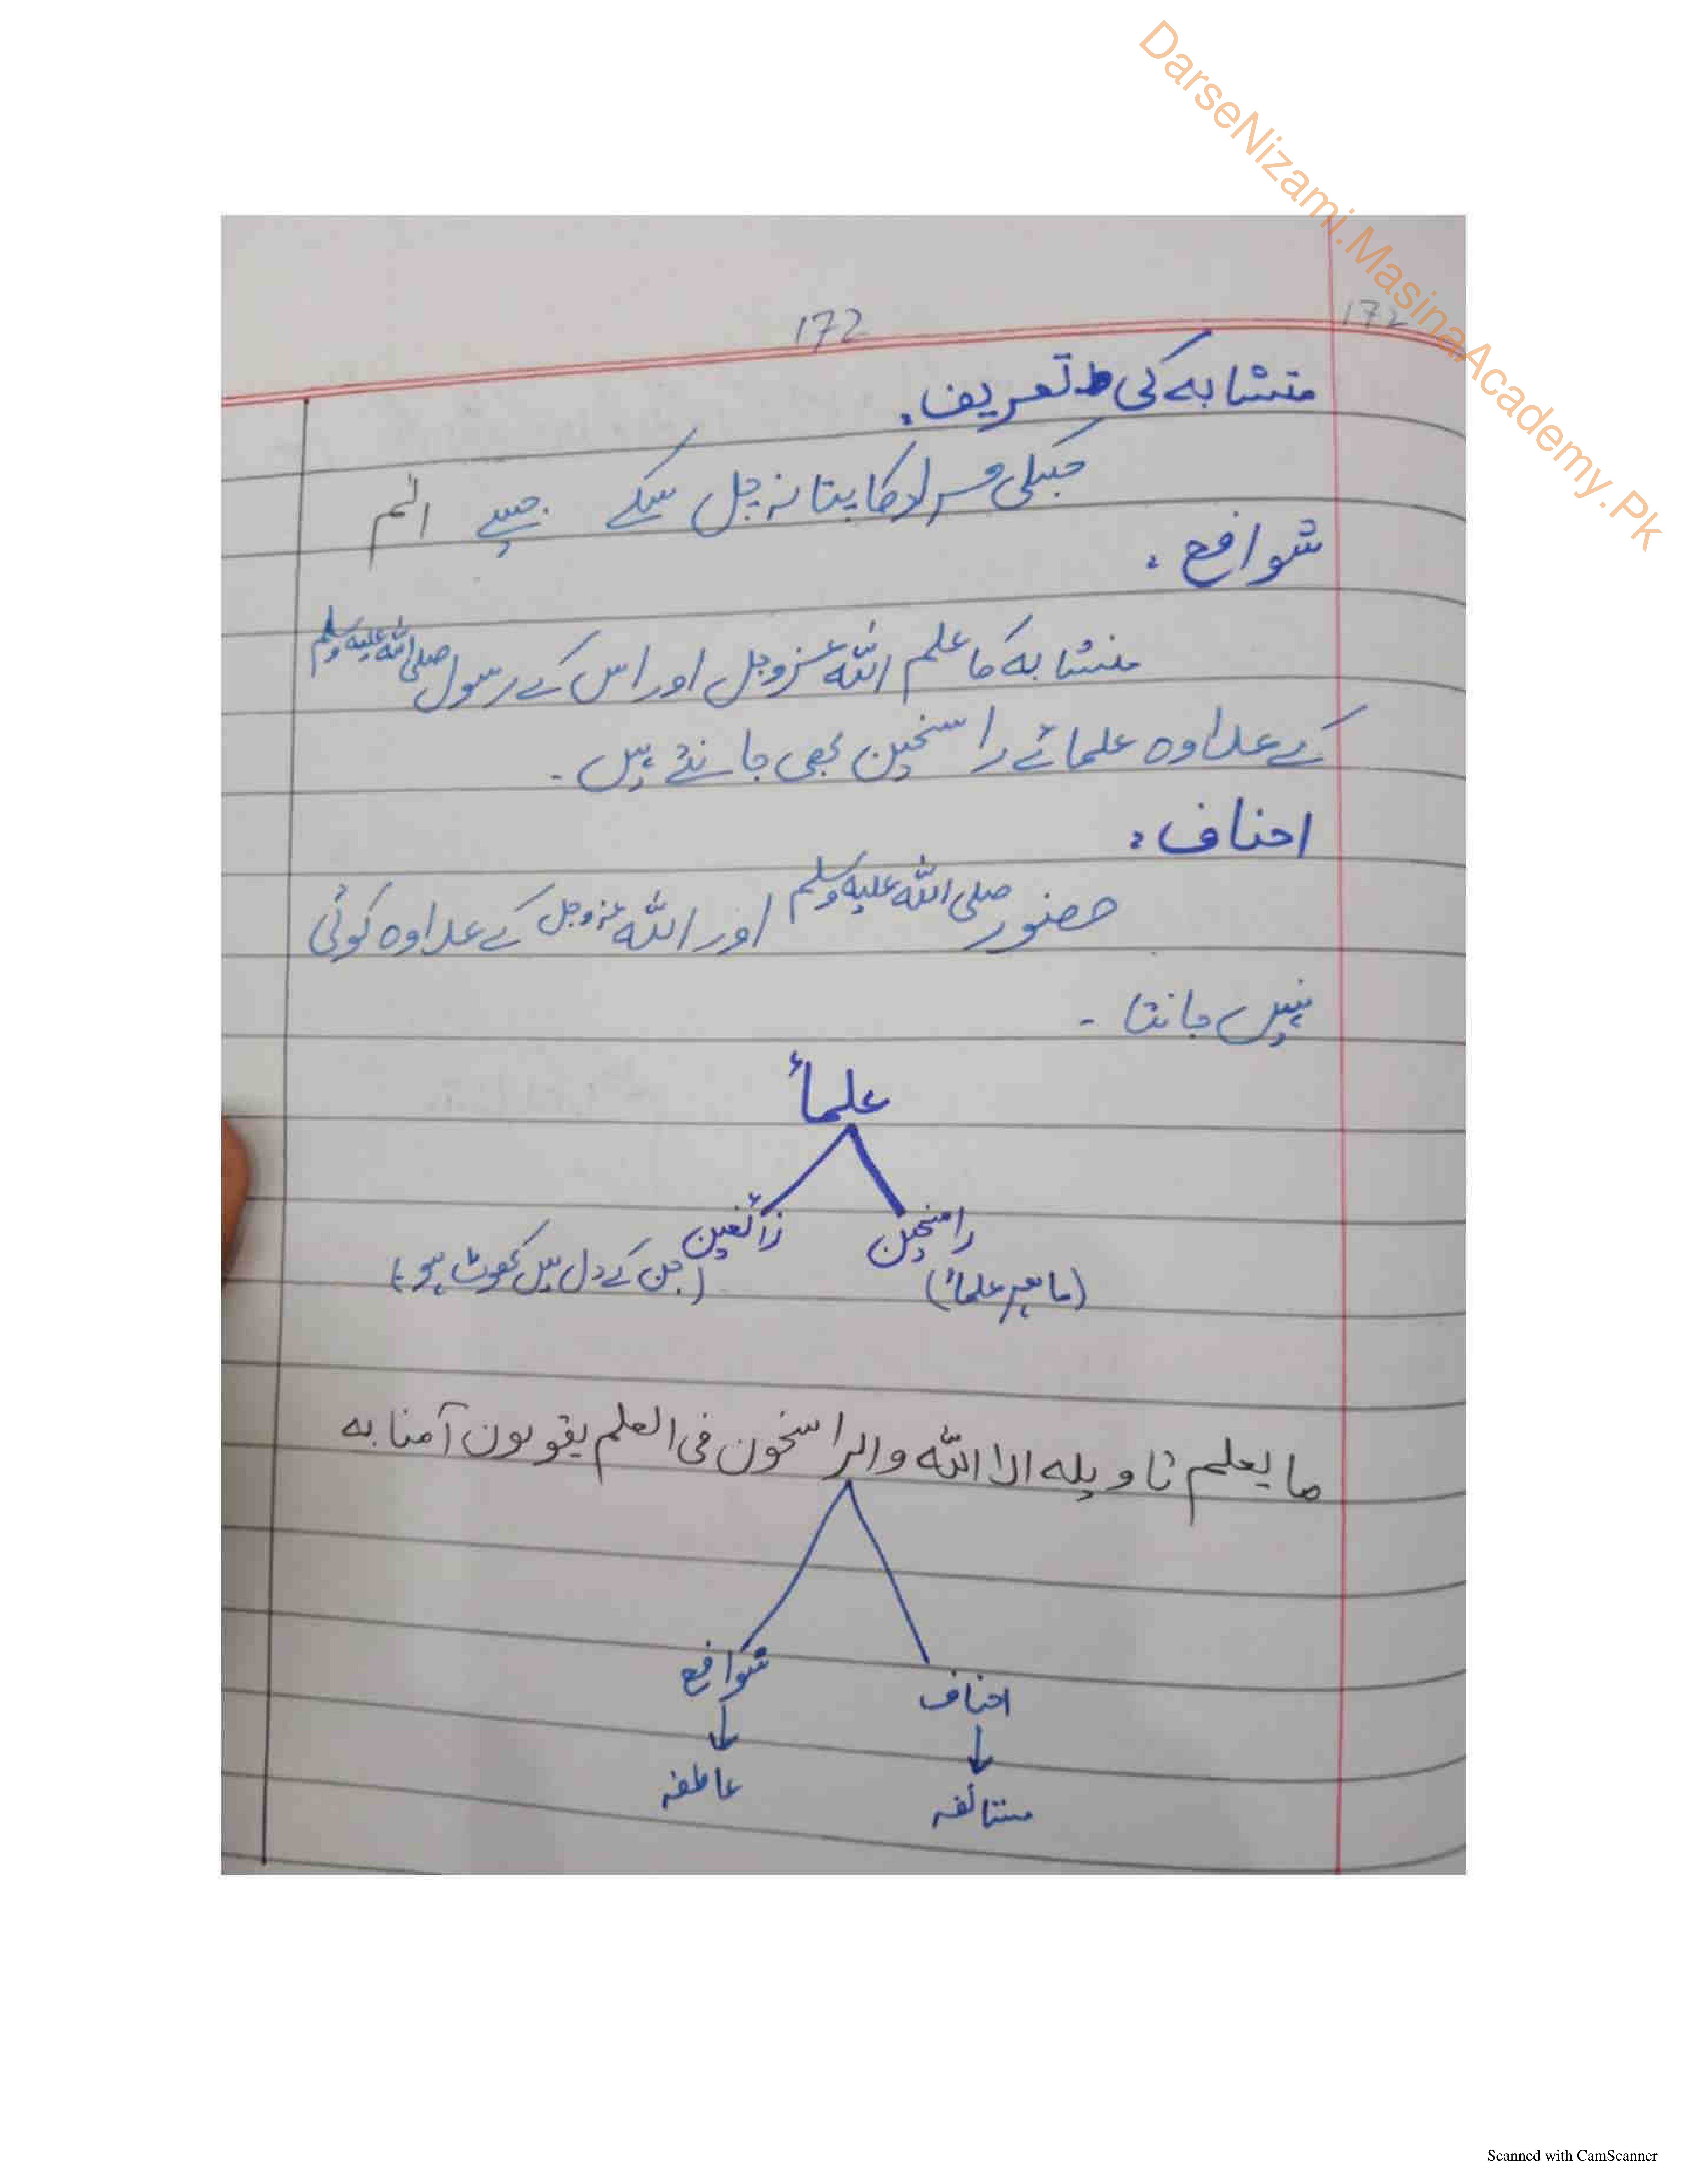 DarseNizami.MasinaAcademy.Pk
172
172
متشابہ کی تعریف۔
جسکی مراد کا پتا نہ چل سکے جیسے الٓم
شوافع :
متشابہ کا علم اللّٰہ عزوجل اور اس کے رسول صلی اللّٰہ علیہ وسلم
کے علاوہ علمائے راسخین بھی جانتے ہیں ۔
احناف :
حضور صلی اللّٰہ علیہ وسلم اور اللّٰہ عزوجل کے علاوہ کوئی
نہیں جانتا ۔
علمأ
راسخین زائغین
(ماہر علمأ) (جن کے دل میں کھوٹ ہو)
ما یعلم تاویلہ الا اللّٰہ والراسخون فی العلم یقولون آمنا بہ
احناف شوافع
↓ ↓
مستانفہ عاطفہ
Scanned with CamScanner